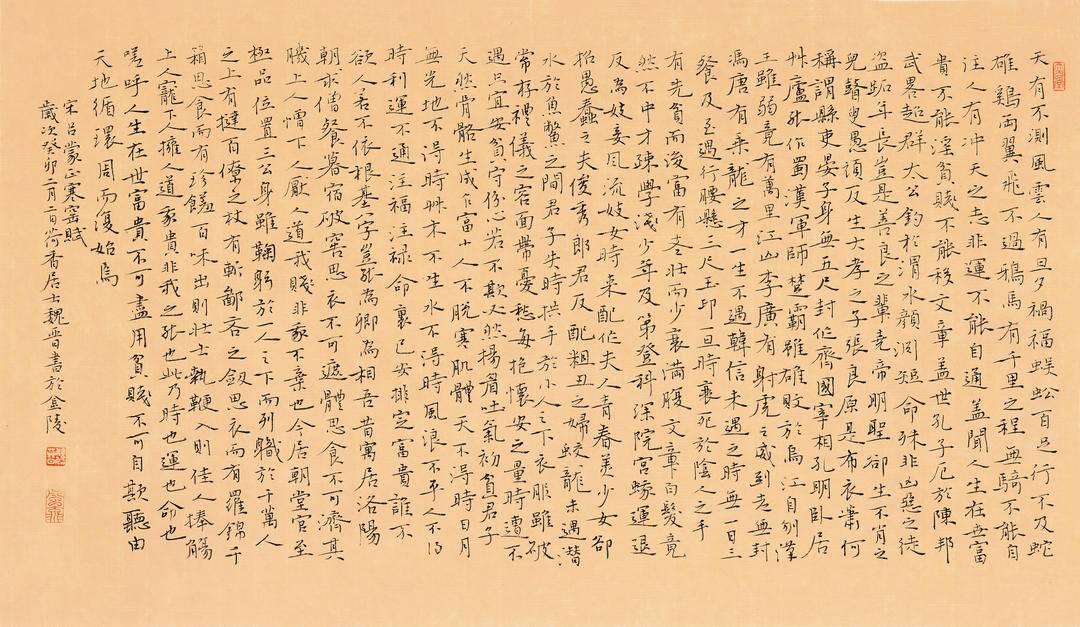 天有不測風雲人有旦夕禍福蜈蚣百足行不及蛇
雄鷄兩翼飛不過鴉馬有千里之程無騎不能自
注人有冲天之志非運不能自通蓋聞人生在世富
貴不能淫貧賤不能移文章蓋世孔子厄於陳邦
武畧超群太公釣於渭水顏淵短命殊非凶惡之徒
盜跖年長豈是善良之輩堯帝明聖卻生不肖之
兒瞽叟愚頑反生大孝之子張良原是布衣蕭何
稱謂縣吏晏子身無五尺封作齊國宰相孔明卧居
艸廬能作蜀漢軍師楚霸雖雄敗於烏江自刎漢
王雖弱竟有萬里江山李廣有射虎之威到老無封
馮唐有乘龍之才一生不遇韓信未遇之時無一日三
餐及至遇行腰懸三尺玉印一旦時衰死於陰人之手
有先貧而後富有老壯而少衰滿腹文章白髮竟
然不中才疎學淺少年及第登科深院宮娥運退
反為妓妾風流妓女時来配作夫人青春美少女卻
招愚蠢之夫俊秀郎君反配粗丑之婦蛟龍未遇潛
水於魚鱉之間君子失時拱手於小人之下衣服雖破
常存禮儀之容面帶憂愁每抱懷安之量時遭不
遇只宜安貧守份心若不欺必然揚眉吐氣初貧君子
天然骨骼生成乍富小人不脫寒肌體天不得時日月
無光地不得時艸木不生水不得時風浪不平人不得
時利運不通注福注祿命裏已安排定富貴誰不
欲人若不依根基八字豈能為卿為相吾昔寓居洛陽
朝求僧餐暮宿破窖思衣不可遮體思食不可濟其
饑上人憎下人厭人道我賤非我不棄也今居朝堂官至
極品位置三公身雖鞠躬於一人之下而列職於千萬人
之上有撻百僚之杖有斬鄙吝之劔思衣而有羅錦千
箱思食而有珍饈百味出則壯士執鞭入則佳人捧觴
上人寵下人擁人道我貴非我之能也此乃時也運也命也
嗟呼人生在世富貴不可盡用貧賤不可自欺聽由
天地循環周而復始焉
宋呂蒙正寒窑賦
歲次癸卯二月二日荷香居士魏晋書於金陵